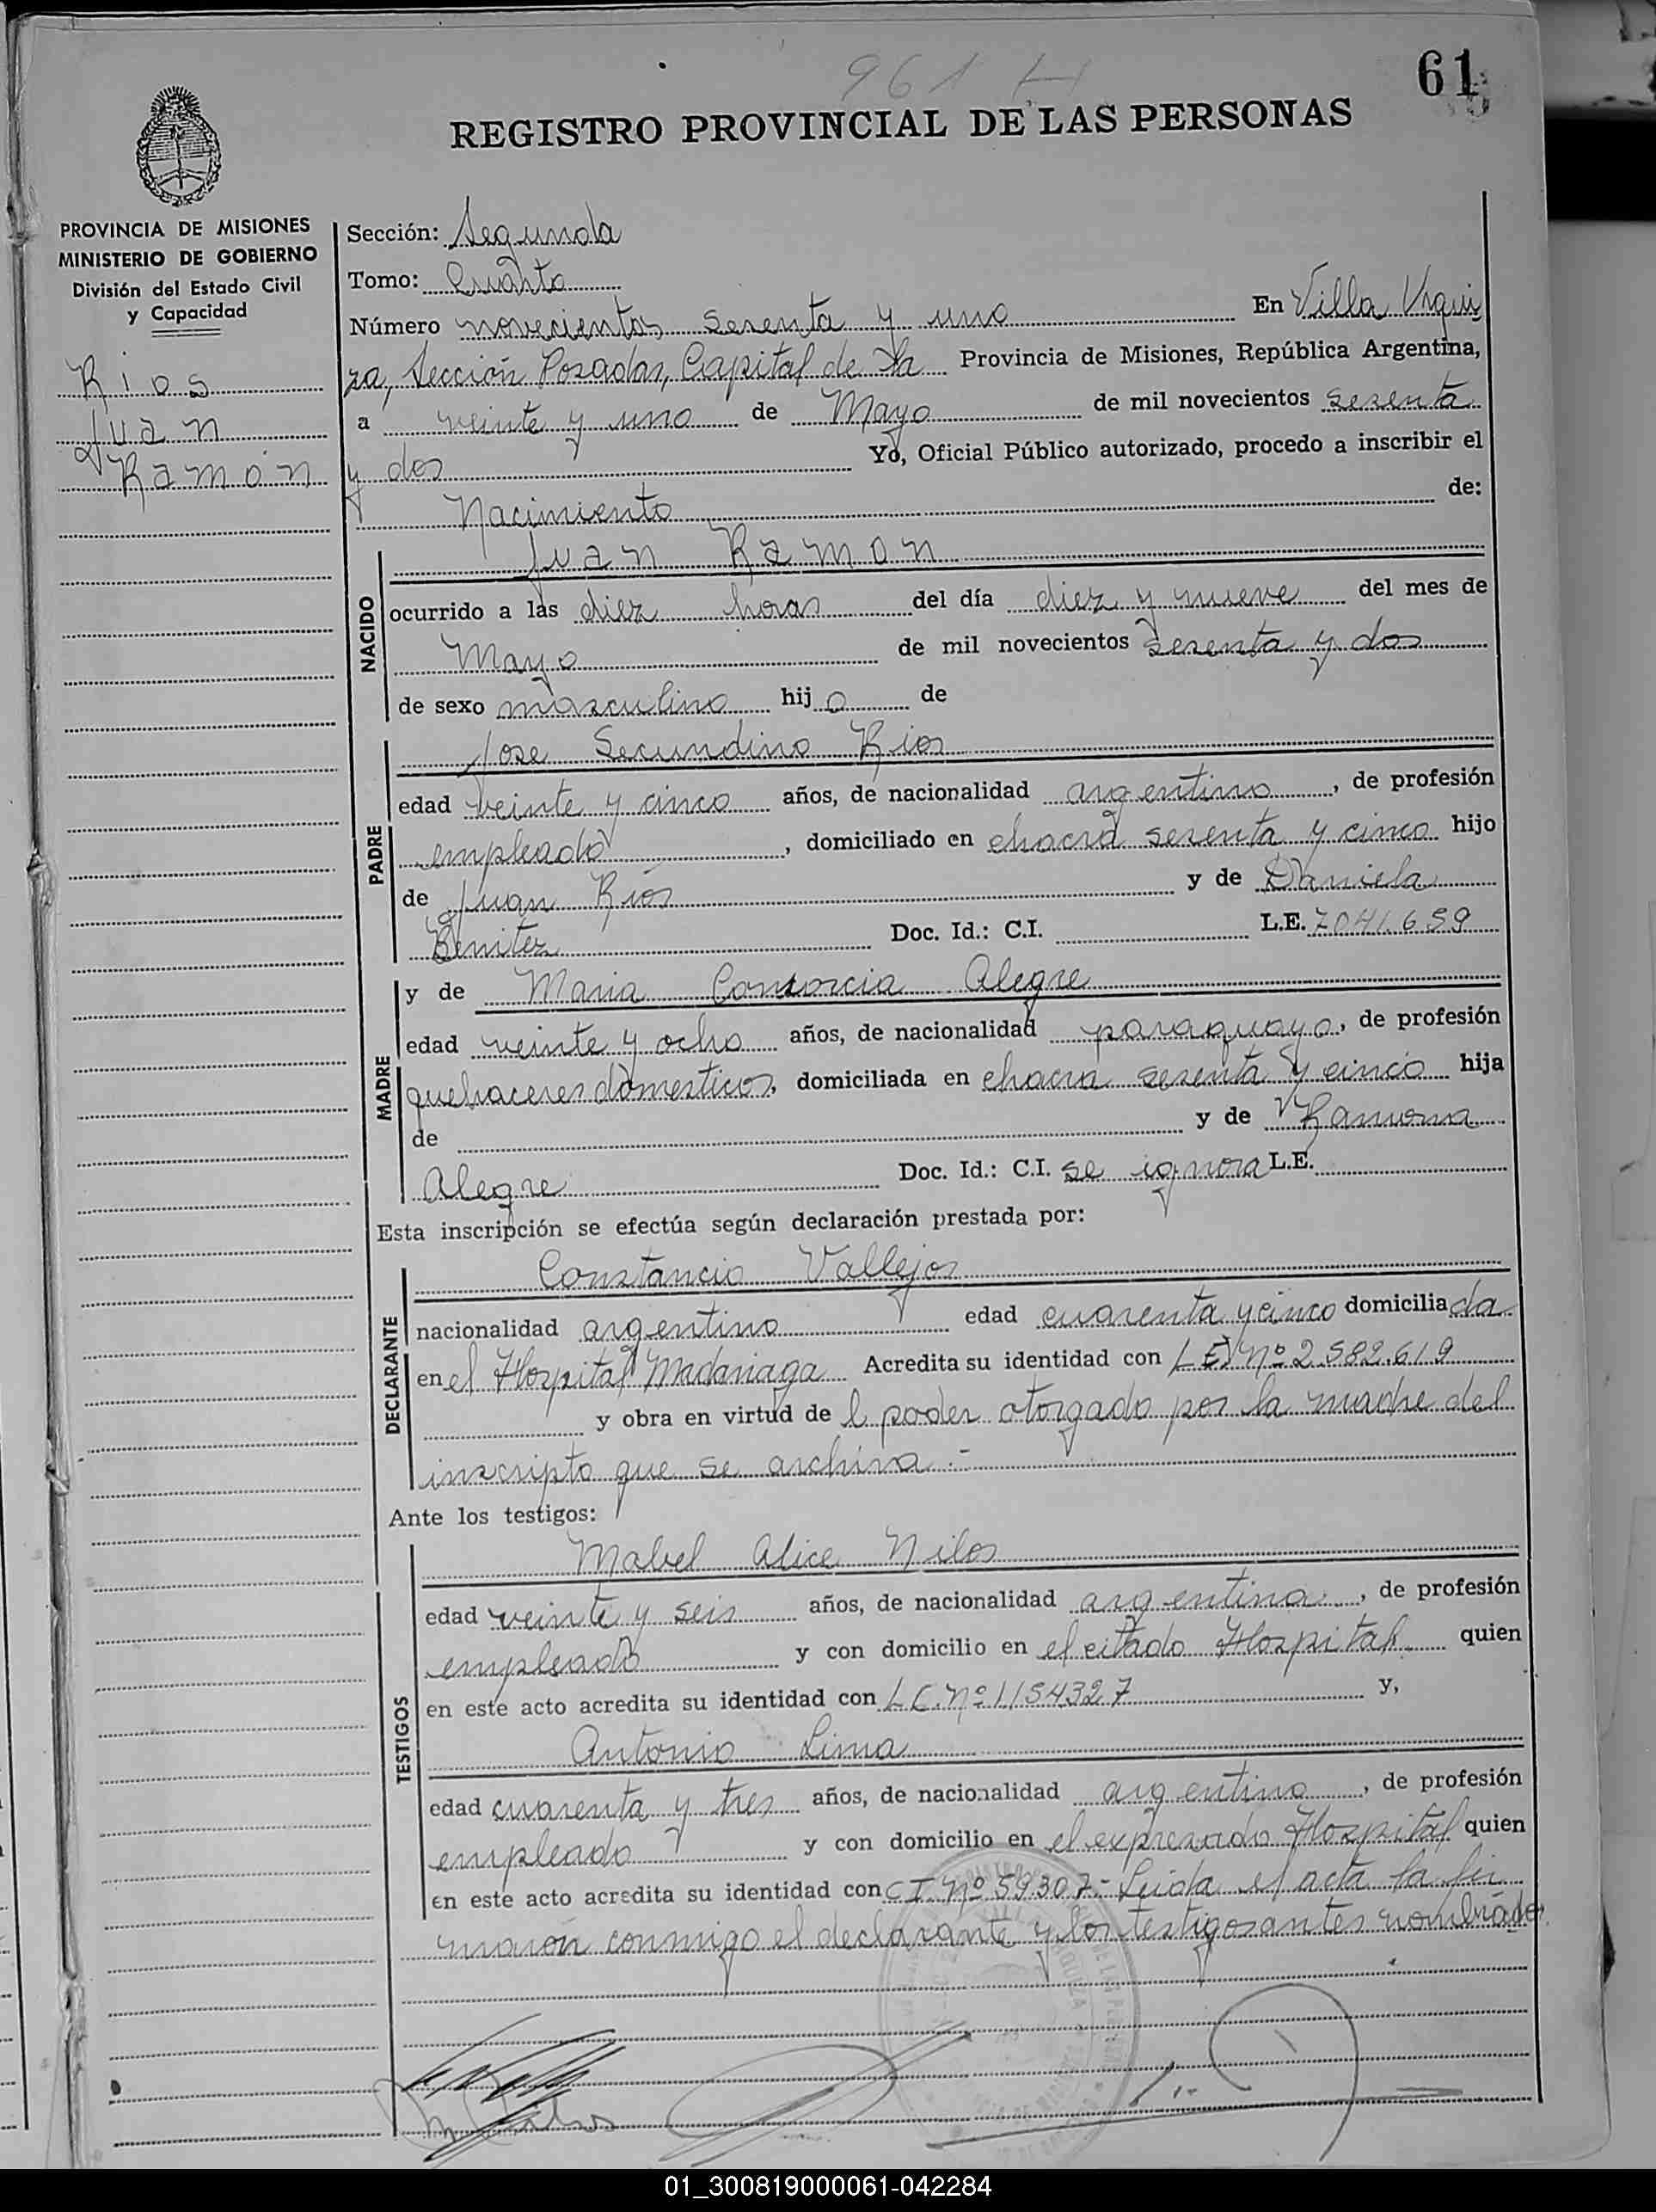 961 H
61
REGISTRO PROVINCIAL DE LAS PERSONAS
PROVINCIA DE MISIONES
MINISTERIO DE GOBIERNO
División del Estado Civil
y Capacidad
Rios
Juan
Ramón
Sección: Segunda
Tomo: Cuarto
Número novecientos sesenta y uno En Villa Urqui
za, Sección Posadas, Capital de la Provincia de Misiones, República Argentina,
a veinte y uno de Mayo de mil novecientos sesenta
y dos Yo, Oficial Público autorizado, procedo a inscribir el
Nacimiento de:
NACIDO
Juan Ramon
ocurrido a las diez horas del día diez y nueve del mes de
Mayo de mil novecientos sesenta y dos
de sexo masculino hijo de
PADRE
Jose Secundino Rios
edad veinte y cinco años, de nacionalidad argentino, de profesión
empleado, domiciliado en chacra sesenta y cinco hijo
de Juan Rios y de Daniela
Benitez Doc. Id.: C.I. L.E. 7041.659
MADRE
y de Maria Consorcia Alegre
edad veinte y ocho años, de nacionalidad paraguaya, de profesión
quehaceres domesticos, domiciliada en chacra sesenta y cinco hija
de y de Ramona
Alegre Doc. Id.: C.I. se ignora L.E.
Esta inscripción se efectúa según declaración prestada por:
DECLARANTE
Constancio Vallejos
nacionalidad argentino edad cuarenta y cinco domiciliado
en el Hospital Madariaga Acredita su identidad con L.E. Nº 2.582.619
y obra en virtud del poder otorgado por la madre del
inscripto que se archiva.-
Ante los testigos:
TESTIGOS
Mabel Alice Nilos
edad veinte y seis años, de nacionalidad argentina, de profesión
empleado y con domicilio en el citado Hospital quien
en este acto acredita su identidad con L.C. Nº 1154327 y,
Antonio Lima
edad cuarenta y tres años, de nacionalidad argentino, de profesión
empleado y con domicilio en el expresado Hospital quien
en este acto acredita su identidad con C.I. Nº 59.307- Leida el acta la fir
maron conmigo el declarante y los testigos antes nombrados
01_300819000061-042284